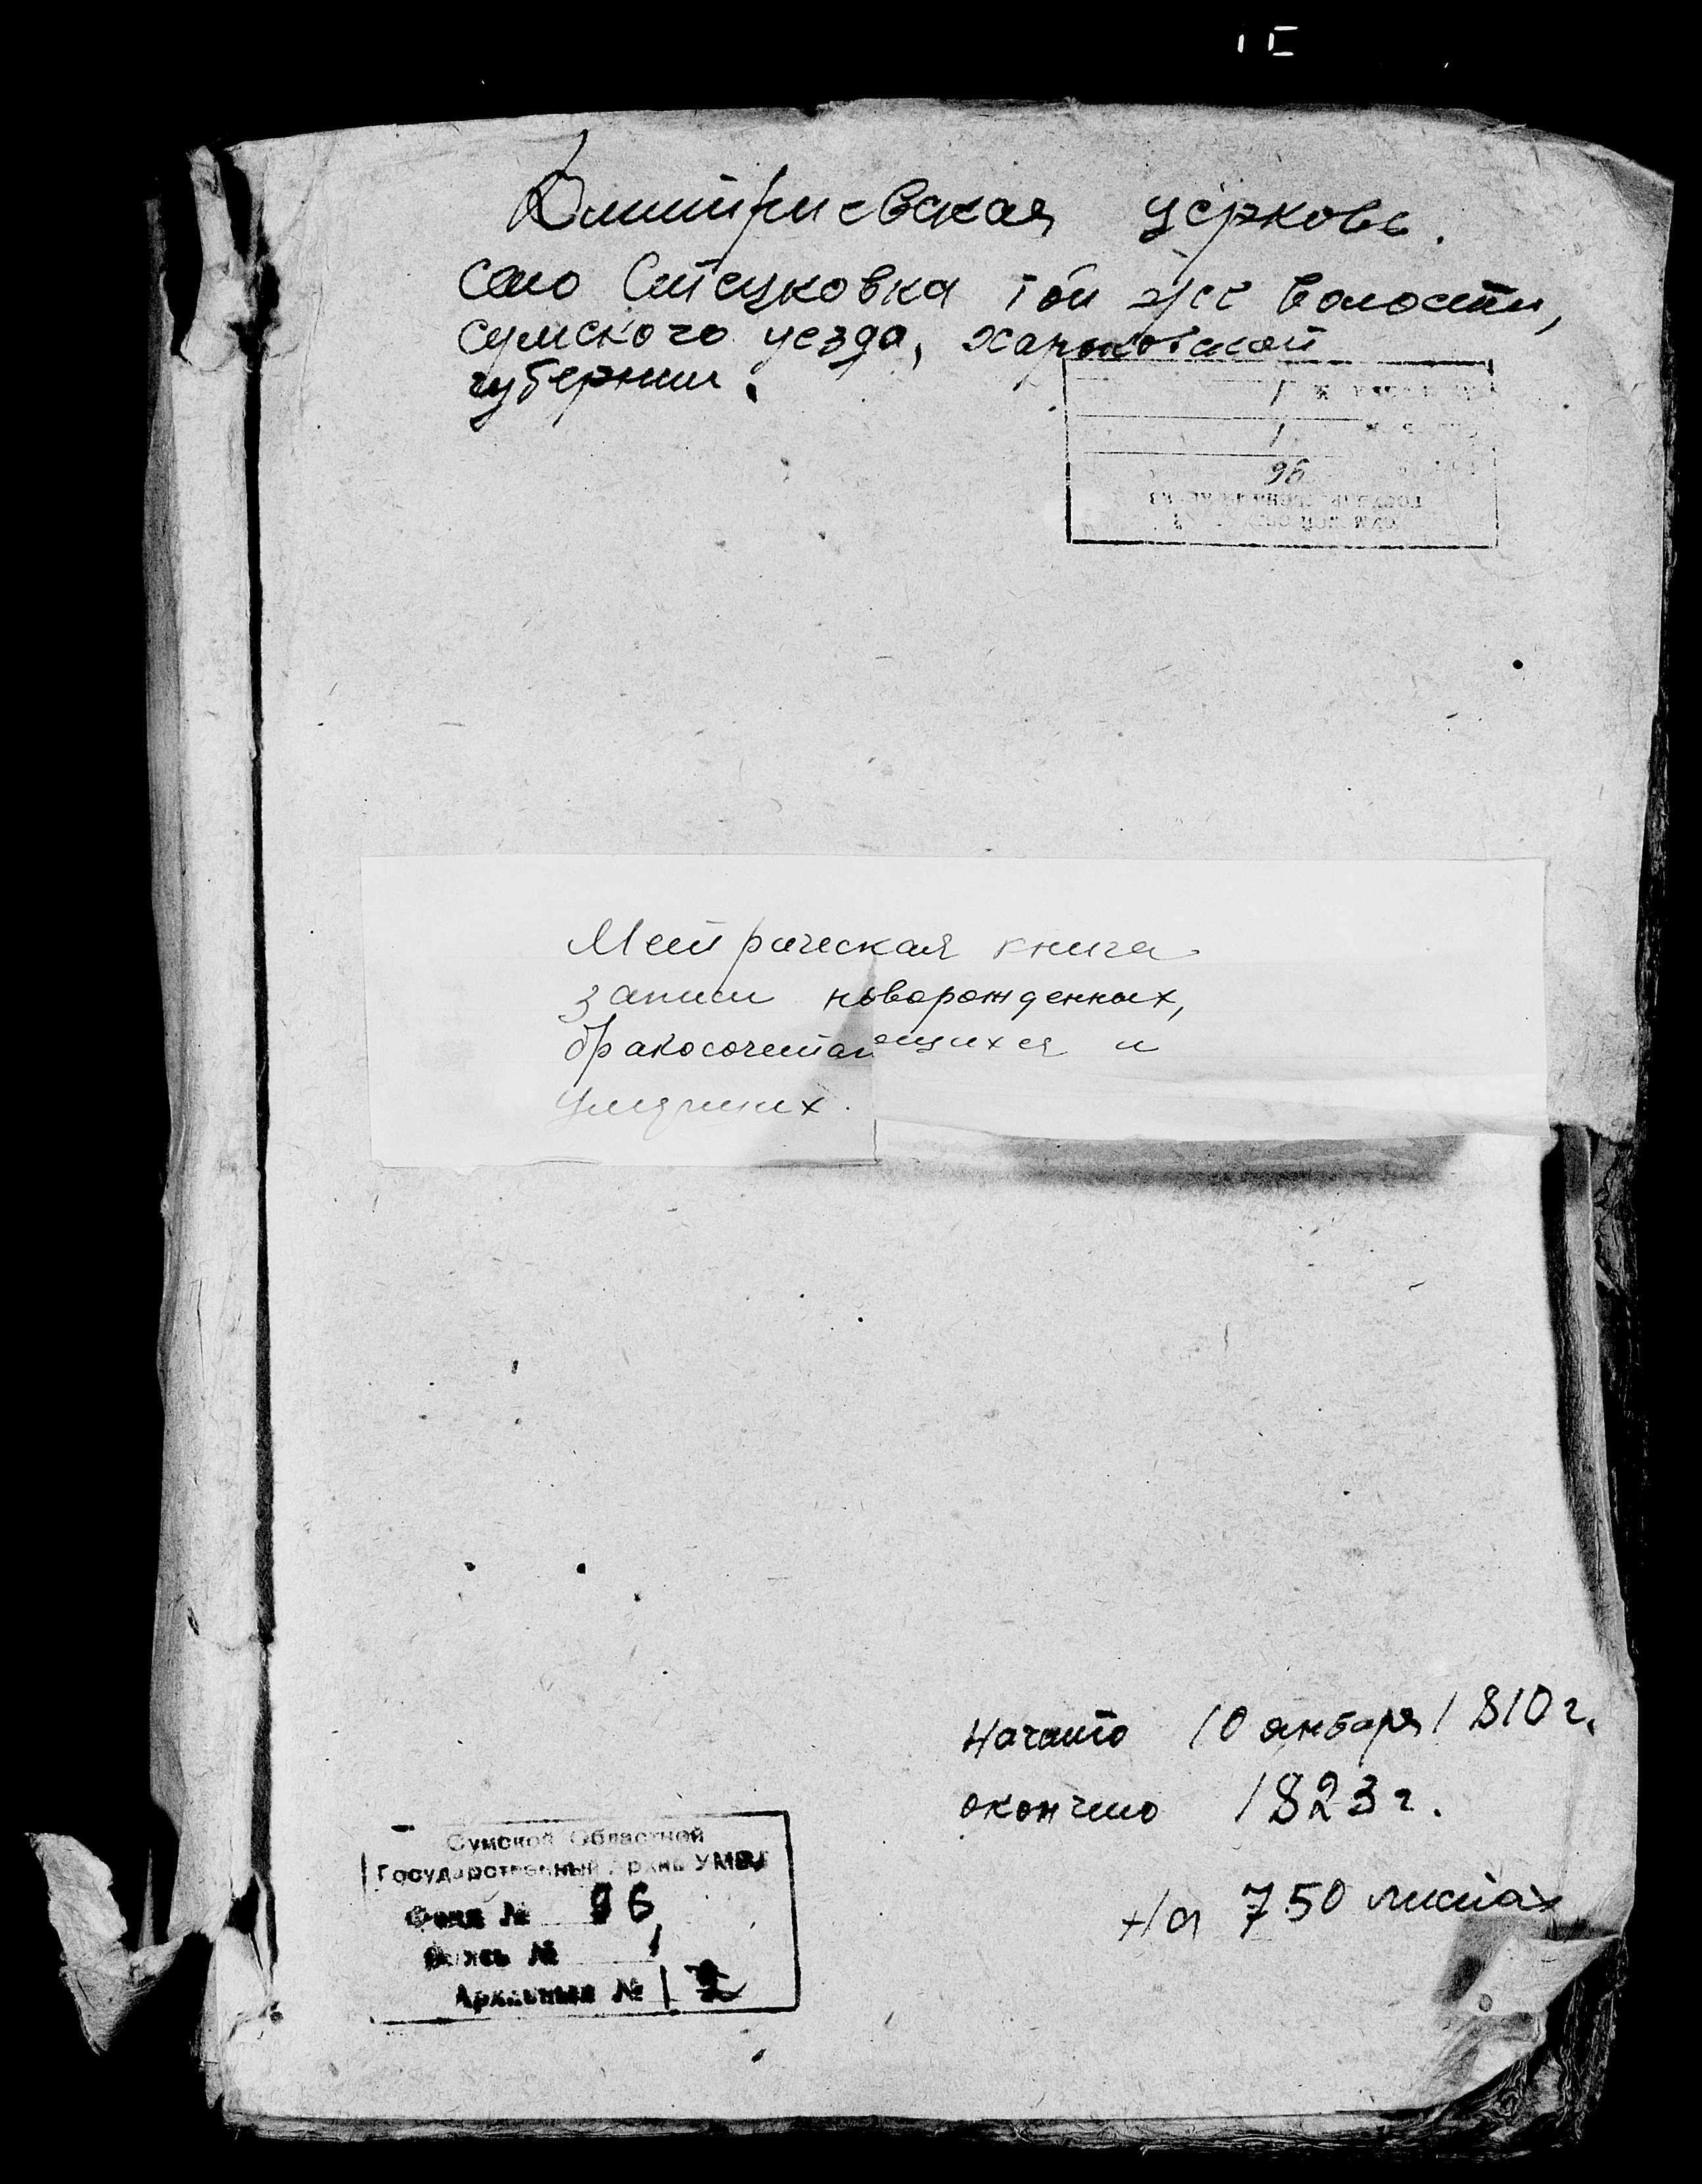 Дмитриевская церковь.
село Стецковка той же волости,
Сумского уезда, Харьковской
губернии.
96
Метрическая книга
записи новорожденных,
бракосочетающихся и
умерших.
Начато 10 января 1810 г.
окончено 1823 г.
На 750 листах
Сумской Областной
Государственный Архив УМВД
Фонд № 96
Опись № 1
Архивный № 2